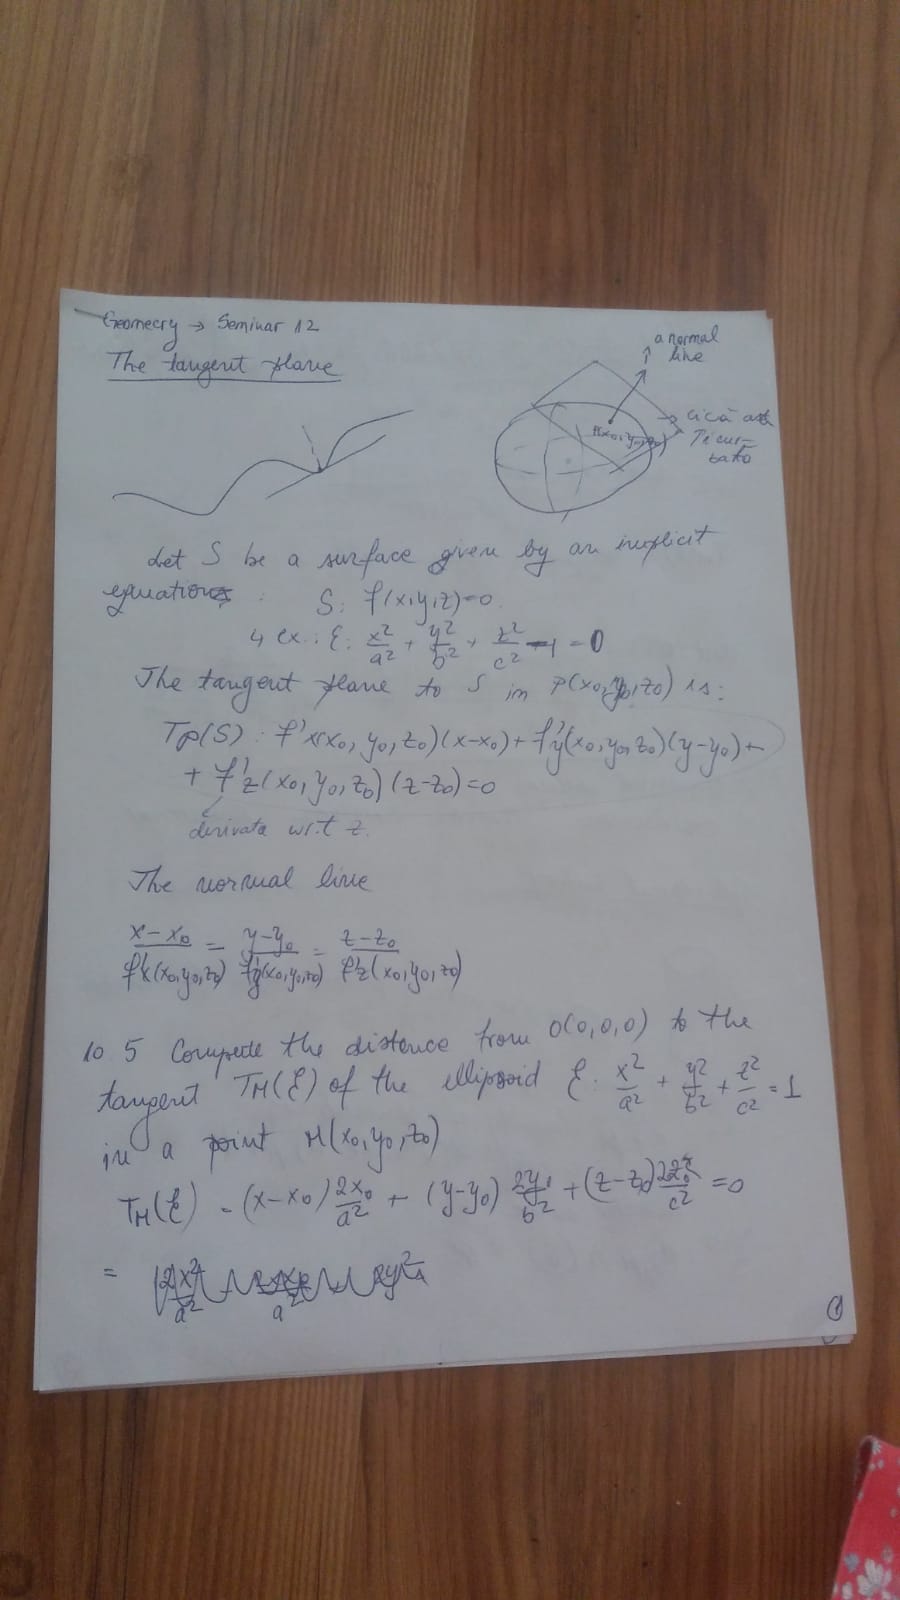 Geomecry → Seminar 12
The tangent plane
a normal
line
P(x₀,y₀,z₀)
Let S be a surface given by an implicit
equation : S: f(x,y,z)=0.
ex.: E: x²/a² + y²/b² + z²/c² -1 = 0
The tangent plane to S in P(x₀,y₀,z₀) is:
Tp(S): f'x(x₀, y₀, z₀)(x-x₀) + f'y(x₀,y₀,z₀)(y-y₀) +
+ f'z(x₀,y₀,z₀)(z-z₀)=0
derivata w.r.t z.
The normal line
(x-x₀)/f'x(x₀,y₀,z₀) = (y-y₀)/f'y(x₀,y₀,z₀) = (z-z₀)/f'z(x₀,y₀,z₀)
10 5 Compute the distance from O(0,0,0) to the
tangent TM(E) of the ellipsoid E: x²/a² + y²/b² + z²/c² = 1
in a point M(x₀,y₀,z₀)
TM(E) = (x-x₀) 2x₀/a² + (y-y₀) 2y₀/b² + (z-z₀) 2z₀/c² = 0
=
1